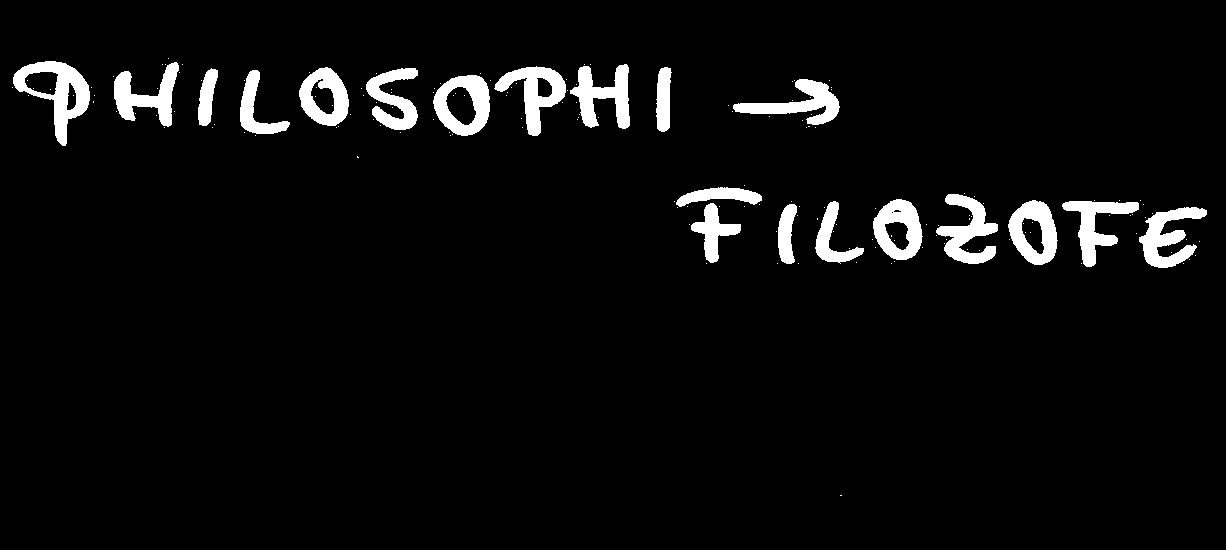 PHILOSOPHI →
FILOZOFE